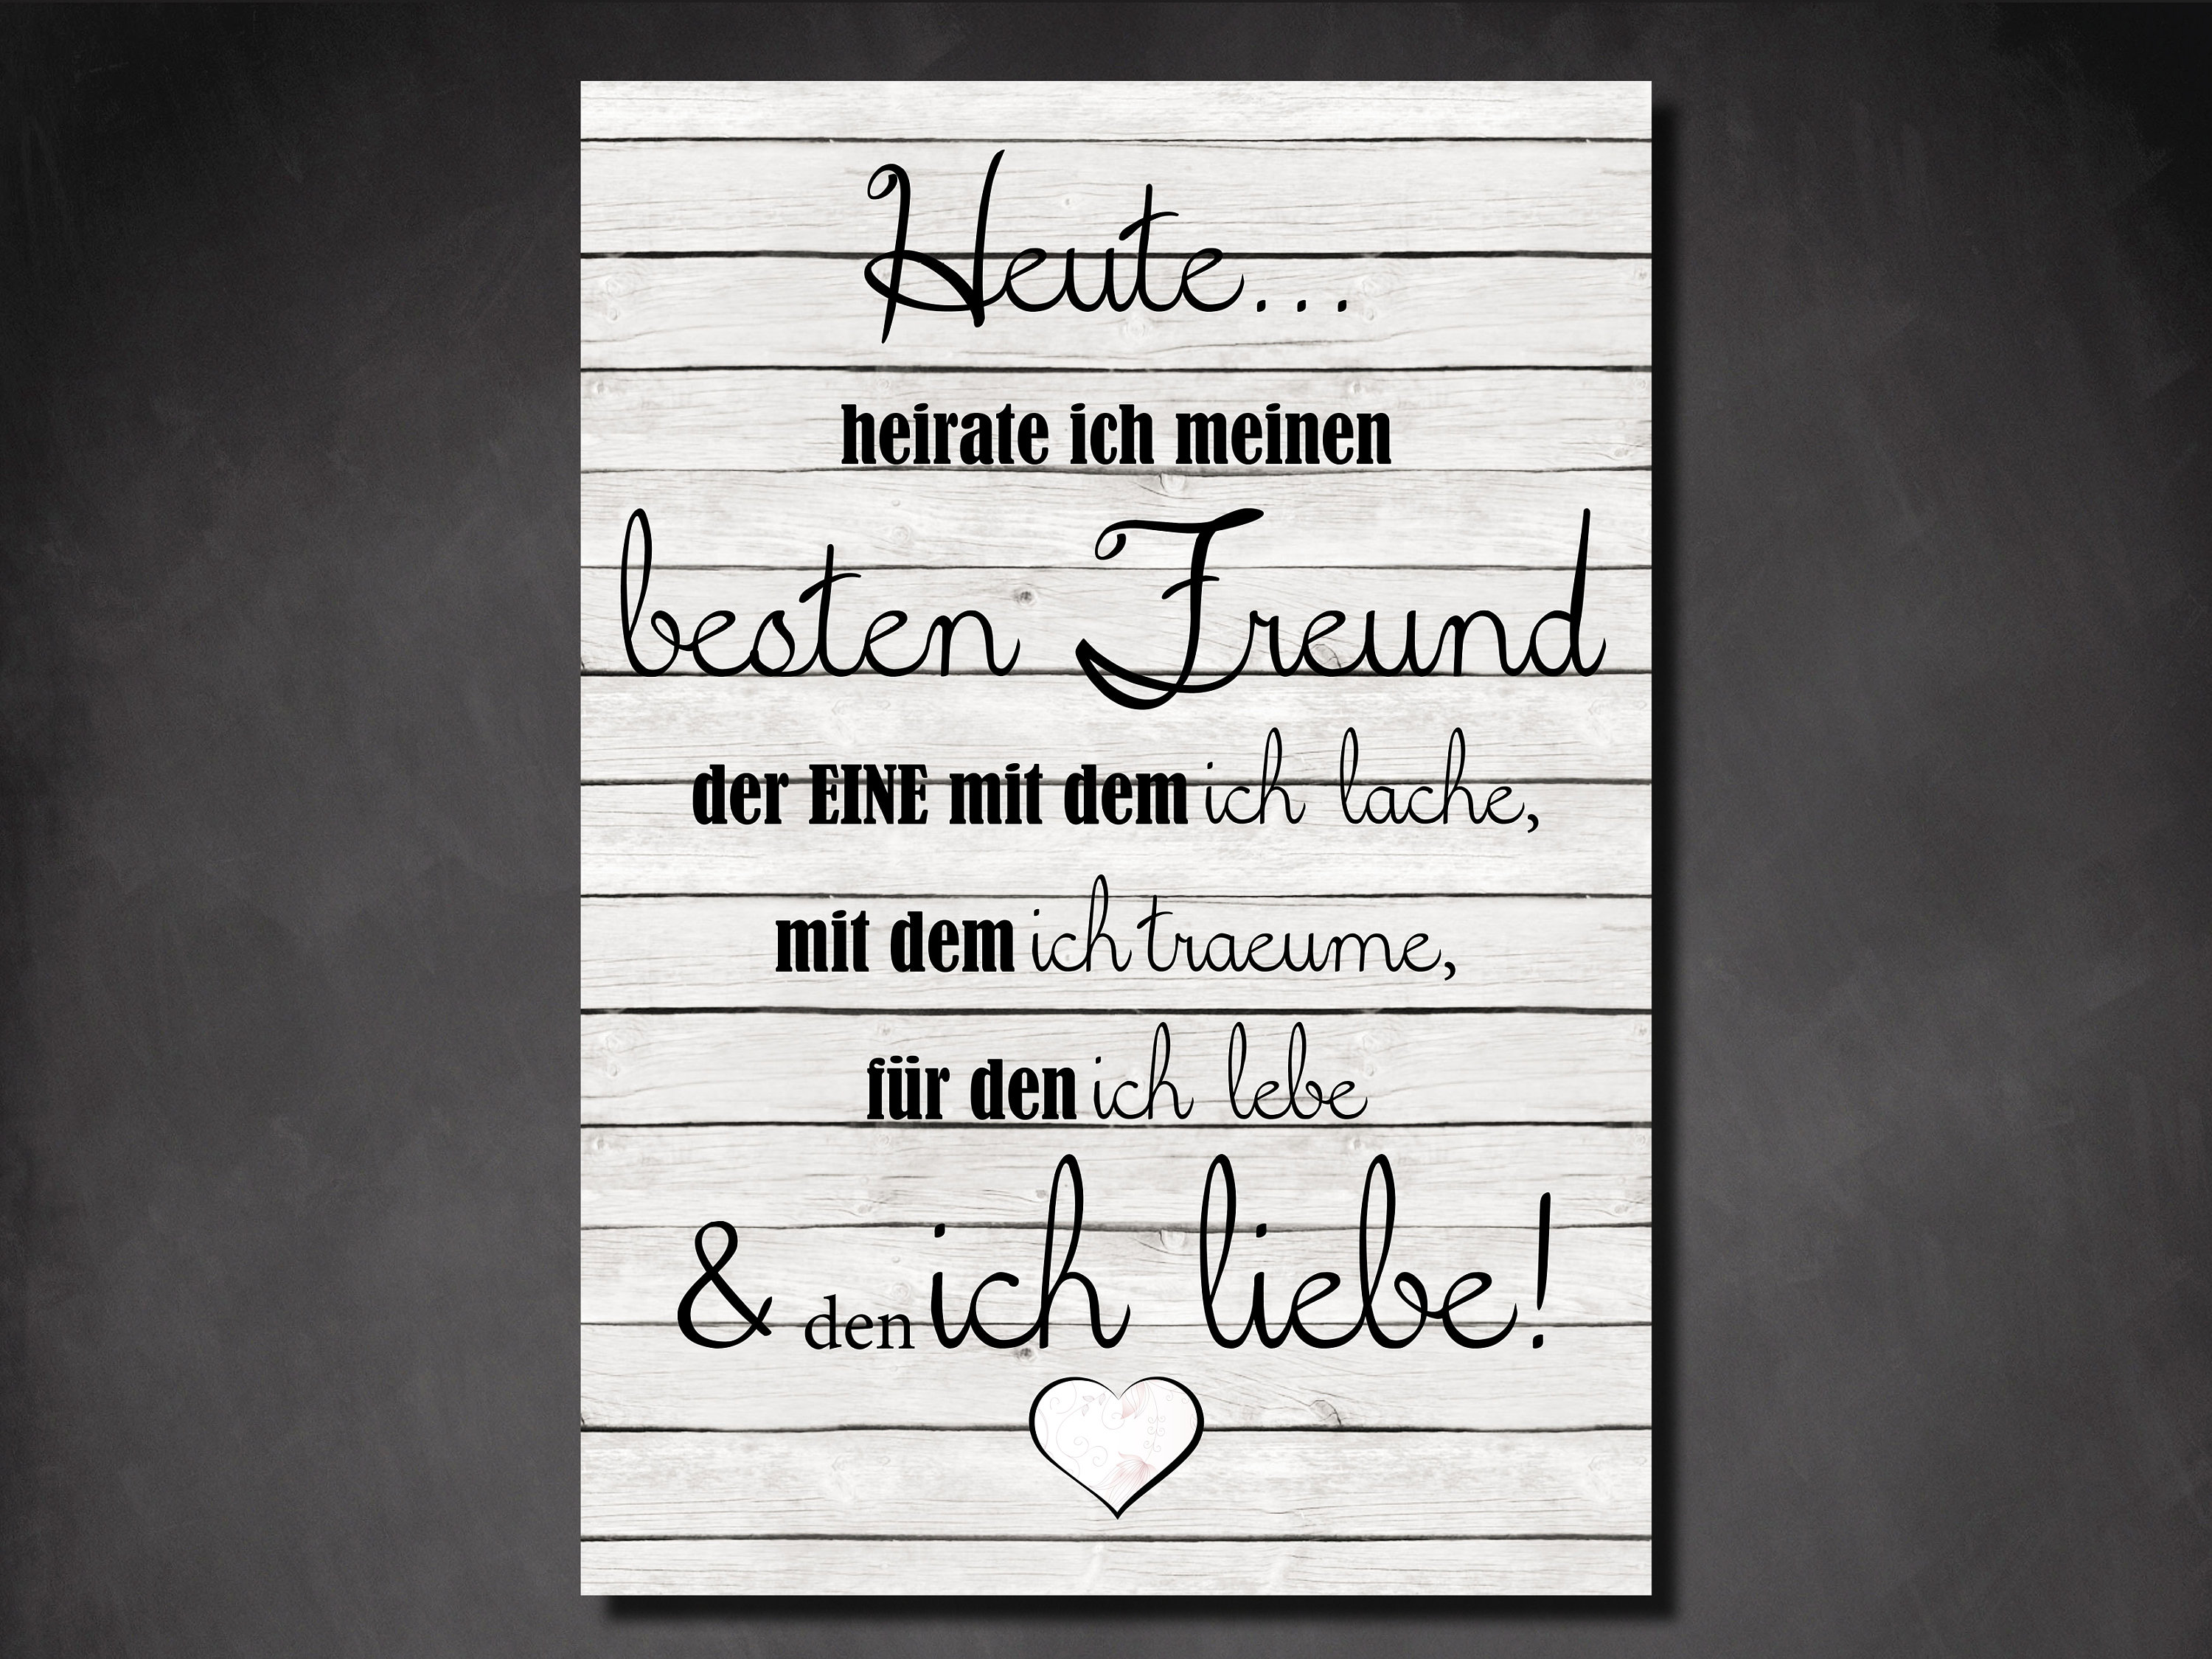 Heute...
heirate ich meinen
besten Freund
der EINE mit dem ich lache,
mit dem ich traeume,
für den ich lebe
& den ich liebe!